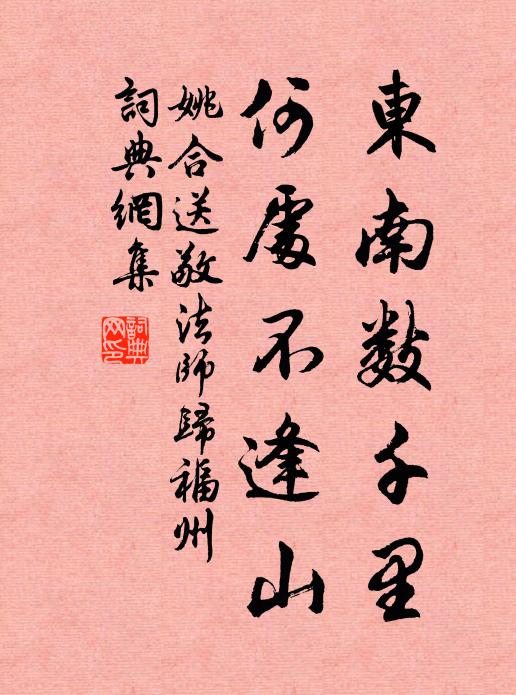 東南數千里
何處不逢山
姚合送敬法師歸福州
詞典網集
詞典網印